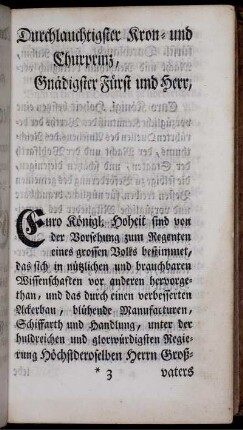 Durchlauchtigster Kron- und
Churprinz,
Gnädigster Fürst und Herr,
Euro Königl. Hoheit sind von
der Vorsehung zum Regenten
eines grossen Volks bestimmet,
das sich in nützlichen und brauchbaren
Wissenschaften vor anderen hervorge-
than, und das durch einen verbesserten
Ackerbau, blühende Manufacturen,
Schiffarth und Handlung, unter der
huldreichen und glorwürdigsten Regie-
rung Höchstderoselben Herrn Groß-
* 3 vaters